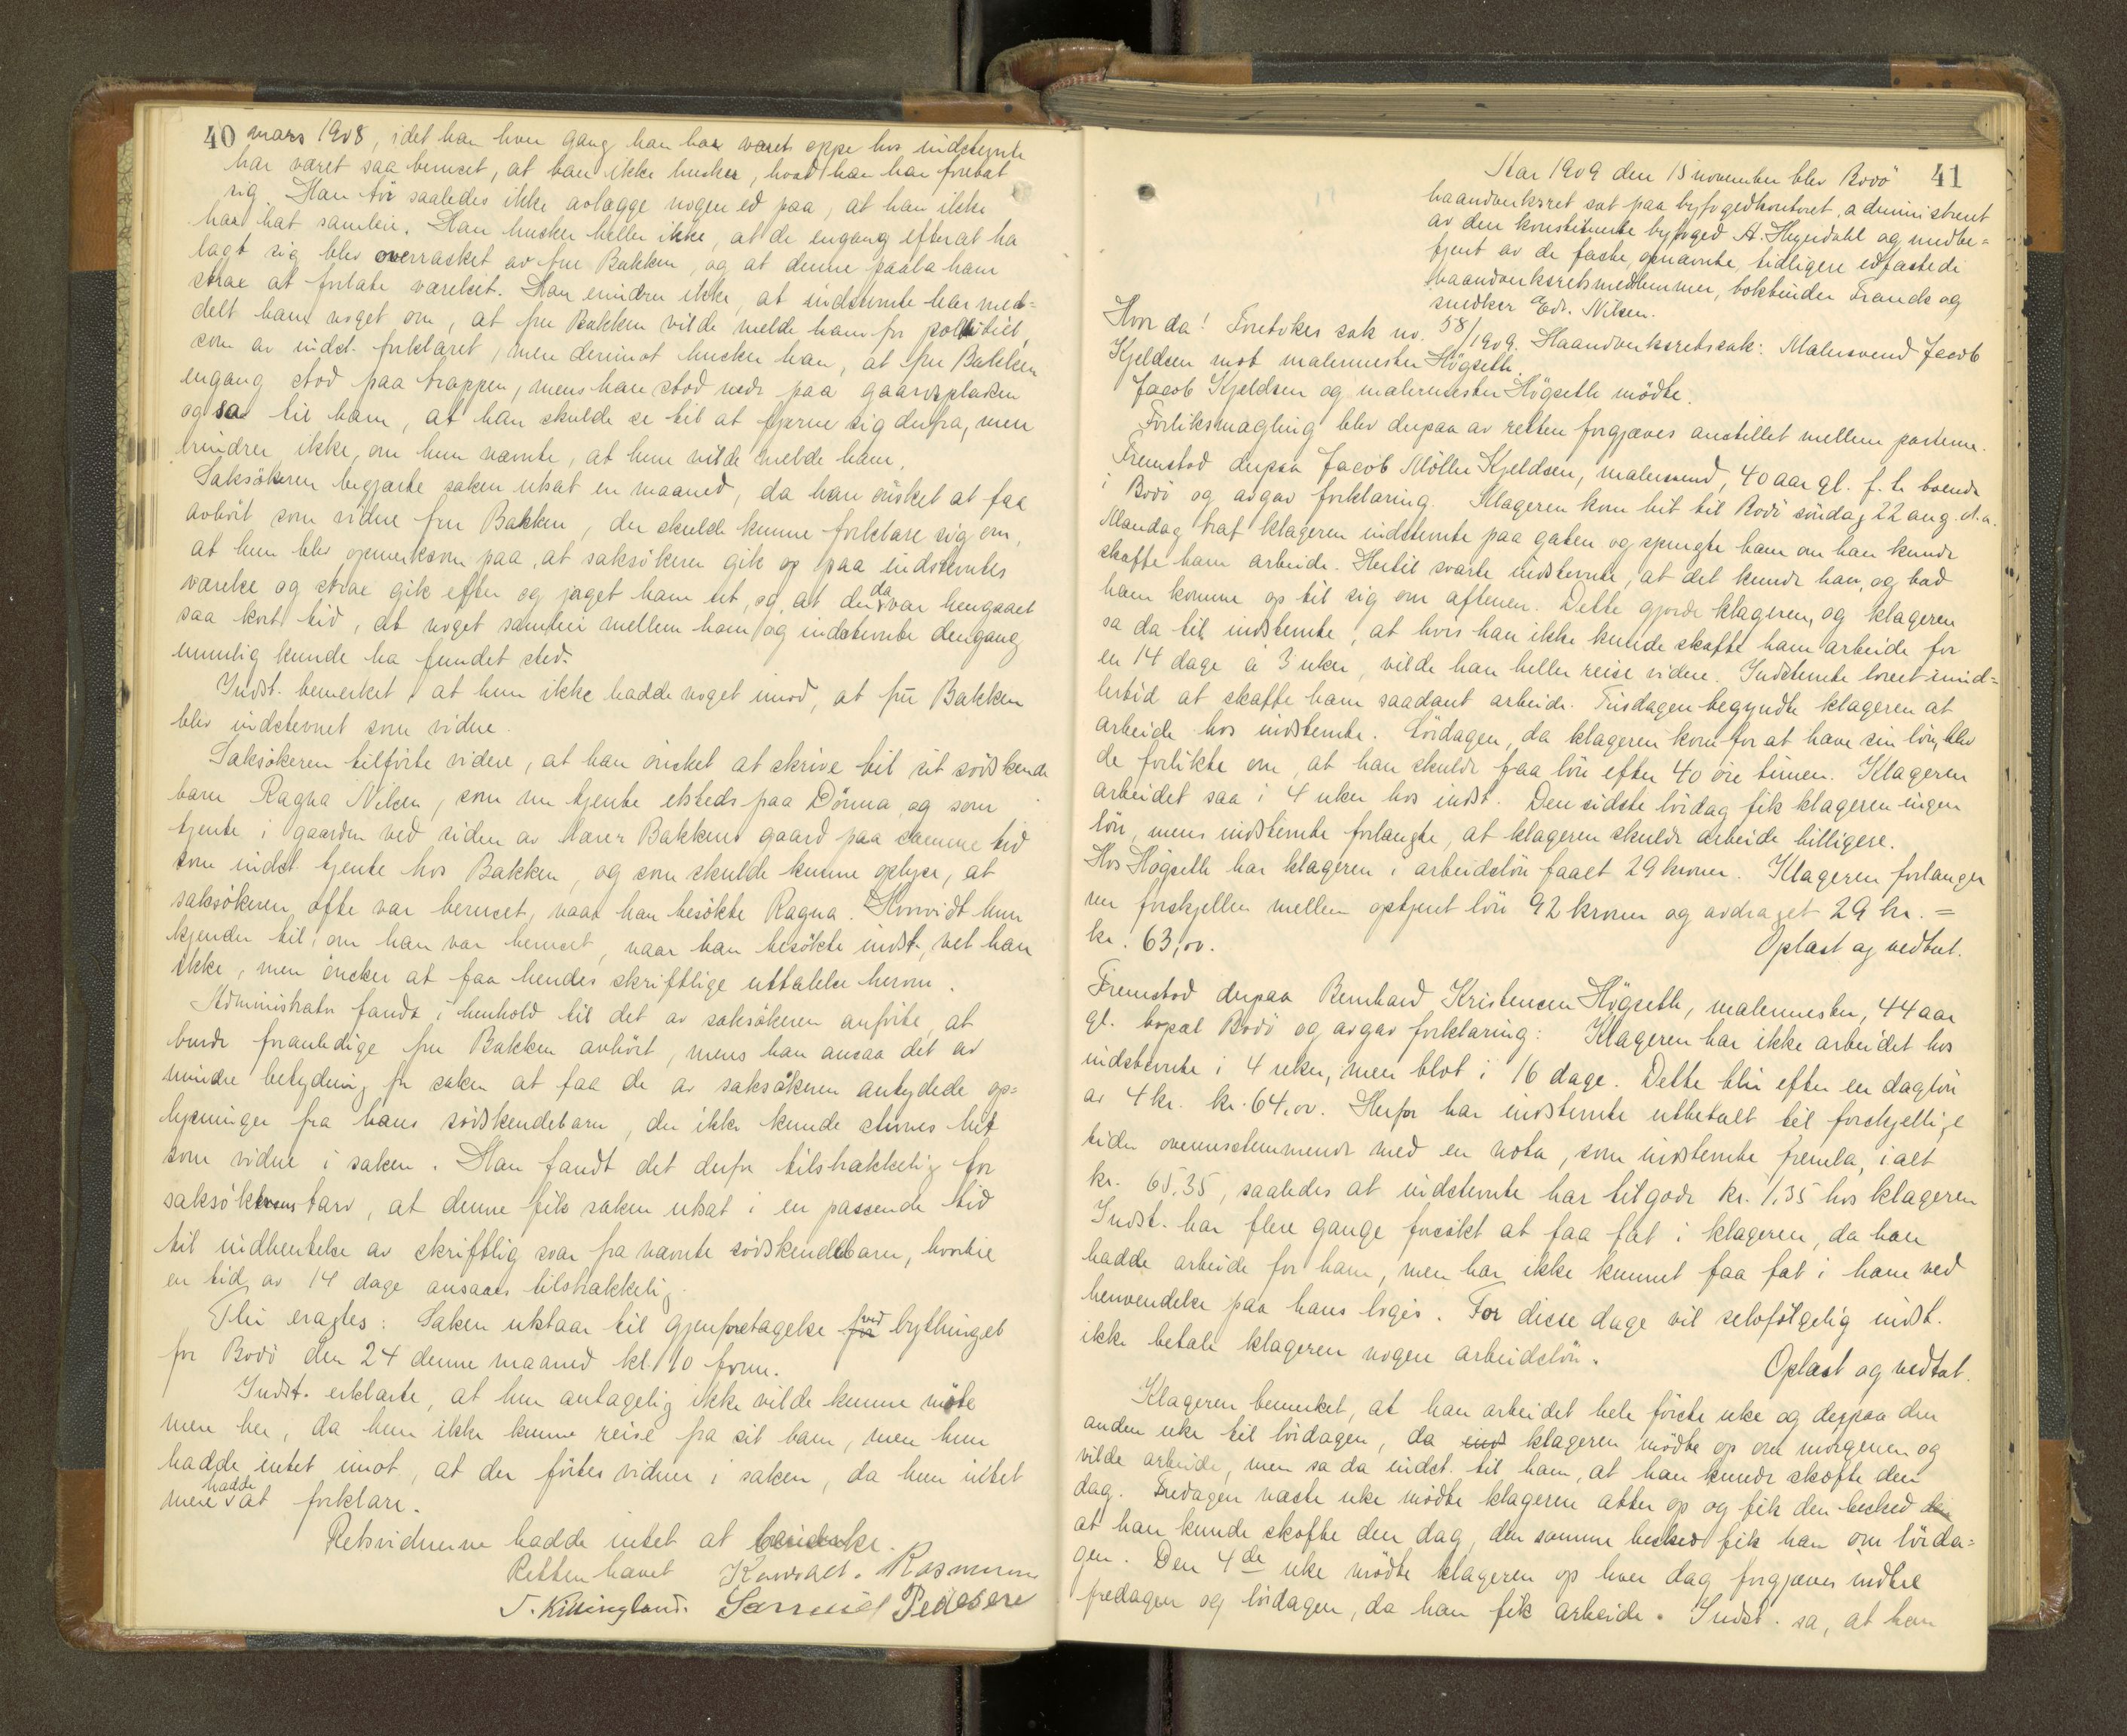 40 mars 1908, idet han hver gang han har været oppe hos indstevnte
har været saa beruset, at han ikke husker, hvad han har foretat
sig. Han tör saaledes ikke avlægge nogen ed paa, at han ikke
har hat samleie. Han husker heller ikke, at de engang efterat ha
lagt sig blev overrasket av fru Bakken, og at denne paala ham
strax at forlate værelset. Han erindrer ikke, at indstevnte har med-
delt ham noget om, at fru Bakken vilde melde ham for politiet,
som av indst. forklaret, men derimot husker han, at fru Bakken
engang stod paa trappen, mens han stod nede paa gaardsplassen
og sa til ham, at han skulde se til at fjerne sig derfra, men
erindrer ikke, om hun nævnte, at hun vilde melde ham.
Saksökeren begjærte saken utsat en maaned, da han önsket at faa
avhört som vidne fru Bakken, der skulde kunne forklare sig om,
at hun blev opmerksom paa, at saksökeren gik op paa indstevntes
værelse og strax gik efter og jaget ham ut, og at der da var hengaaet
saa kort tid, at noget samleie mellem ham og indstevnte dengang
umulig kunde ha fundet sted.
Indst. bemerket, at hun ikke hadde noget imod, at fru Bakken
blev indstevnet som vidne.
Saksökeren tilförte videre, at han önsket at skrive til sit södskende
barn Ragna Nilsen, som nu tjente etsteds paa Dönna, og som
tjente i gaarden ved siden av lærer Bakkens gaard paa samme tid
som indst. tjente hos Bakken, og som skulde kunne oplyse, at
saksökeren ofte var beruset, naar han besökte Ragna. Hvorvidt hun
kjender til, om han var beruset, naar han besökte indst., vet han
ikke, men önsker at faa hendes skriftlige uttalelse herom.
Administrator fandt i henhold til det av saksökeren anförte, at
burde foranledige fru Bakken avhört, mens han ansaa det av
mindre betydning for saken at faa de av saksökeren antydede op-
lysninger fra hans södskendebarn, der ikke kunde stevnes hit
som vidne i saken. Han fandt det derfor tilstrækkelig for
saksökerens tarv, at denne fik saken utsat i en passende tid
til indhentelse av skriftlig svar fra nævnte södskendebarn, hvortil
en tid av 14 dage ansaaes tilstrækkelig.
Thi eragtes: Saken utstaar til gjenforetagelse for ved bythinget
for Bodö den 24 denne maaned kl. 10 form.
Indst. erklærte, at hun antagelig ikke vilde kunne möte
mere her, da hun ikke kunne reise fra sit barn, men hun
hadde intet imot, at der förtes vidner i saken, da hun intet
mere hadde at forklare.
Retsvidnerne hadde intet at bemerke.
Retten hævet
J. Killingland. Samuel Pedersen
41
Aar 1909 den 15 november blev Bodö
haandverksret sat paa byfogedkontoret, administreret
av den konstituerte byfoged A. Heyerdahl og medbe-
tjent av de faste, opnævnte tidligere edfæstede
haandverksretsmedlemmer, bokbinder Frands og
snedker Edv. Nilsen.
Hvor da! Foretokes sak no. 58/1909. Haandverksretssak: Malersvend Jacob
Kjeldsen mot malermester Högseth.
Jacob Kjeldsen og malermester Högseth mödte.
Forliksmægling blev derpaa av retten forgjæves anstillet mellem parterne.
Fremstod derpaa Jacob Möller Kjeldsen, malersvend, 40 aar gl. f. t. boende
i Bodö og avgav forklaring. Klageren kom hit til Bodö söndag 22 aug. d. a.
Mandag traf klageren indstevnte paa gaten og spurgte ham om han kunde
skaffe ham arbeide. Hertil svarte indstevnte, at det kunde han, og bad
ham komme op til sig om aftenen. Dette gjorde klageren, og klageren
sa da til indstevnte, at hvis han ikke kunde skaffe ham arbeide for
en 14 dage à 3 uker, vilde han heller reise videre. Indstevnte lovet imid-
lertid at skaffe ham saadant arbeide. Tirsdagen begyndte klageren at
arbeide hos indstevnte. Lördagen, da klageren kom for at have sin lön, blev
de forlikte om, at han skulde faa lön efter 40 öre timen. Klageren
arbeidet saa i 4 uker hos indst. Den sidste lördag fik klageren ingen
lön, mens indstevnte forlangte, at klageren skulde arbeide billigere.
Hos Högseth har klageren i arbeidslön faaet 29 kroner. Klageren forlanger
nu forskjellen mellem optjent lön 92 kroner og avdraget 29 kr. =
kr. 63,00.
Oplæst og vedtat.
Fremstod derpaa Bernhard Kristensen Högseth, malermester, 44 aar
gl. bopæl Bodö og avgav forklaring: Klageren har ikke arbeidet hos
indstevnte i 4 uker, men blot i 16 dage. Dette blir efter en daglön
av 4 kr. kr. 64,00. Herfor har indstevnte utbetalt til forskjellige
tider overensstemmende med en nota, som indstevnte fremla, ialt
kr. 65,35, saaledes at indstevnte har tilgode kr. 1,35 hos klageren
Indst. har flere gange forsökt at faa fat i klageren, da han
hadde arbeide for ham, men har ikke kunnet faa fat i ham ved
henvendelse paa hans logis. For disse dage vil selvfölgelig indst.
ikke betale klageren nogen arbeidslön.
Oplæst og vedtat.
Klageren bemerket, at han arbeidet hele förste uke og derpaa den
anden uke til lördagen, da indst klageren mödte op om morgenen og
vilde arbeide, men sa da indst. til ham, at han kunde skofte den
dag. Fredagen næste uke mödte klageren atter op og fik den besked den
at han kunde skofte den dag, den samme besked fik han om lörda-
gen. Den 4de uke mödte klageren op hver dag forgjæves indtil
fredagen og lördagen, da han fik arbeide. Indst. sa, at han